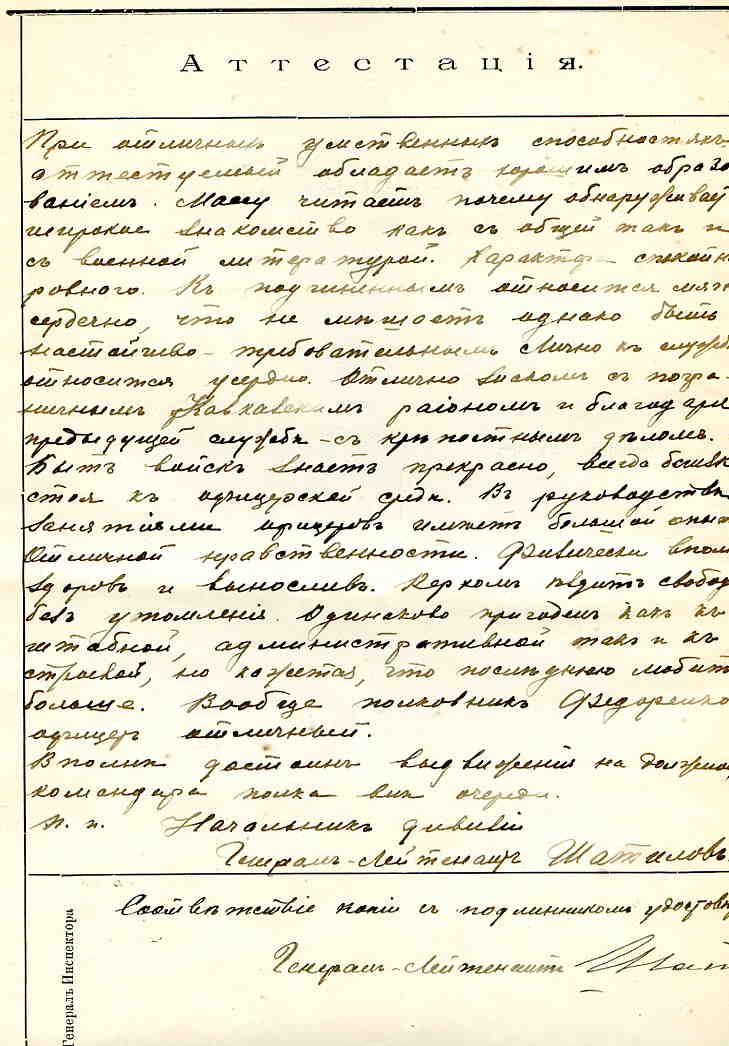 Аттестація.
При отличныхъ умственныхъ способностяхъ
аттестуемый обладаетъ хорошимъ образо
ваніемъ. Массу читаетъ почему обнаруживаў
широкое знакомство какъ съ общей такъ и
съ военной литературой. Характера спокойн
ровнаго. Къ подчиненнымъ относится мяг
сердечно, что не мѣшаетъ однако быть
настойчиво-требовательнымъ Лично къ служб
относится усердно. Отлично знакомъ съ погра-
ничнымъ Кавказскимъ раіономъ и благодаря
предыдущей службѣ - съ крѣпостнымъ дѣломъ.
Бытъ войскъ знаетъ прекрасно, всегда близк
стоя къ офицерской средѣ. Въ руководствѣ
занятіями офицеровъ имѣетъ большой опыт
Отличной нравственности. Физически впол
здоровъ и выносливъ. Верхомъ ѣздитъ свобод
безъ утомленія. Одинаково пригоденъ какъ къ
штабной, административной такъ и къ
строевой, но кажется, что послѣднюю любит
больше. Вообще полковникъ Федоренко
офицеръ отличный.
Вполнѣ достоинъ выдвиженія на должнос
командира полка внѣ очереди.
п. п. Начальникъ дивизіи
Генералъ-Лейтенантъ Шатиловъ.
Соотвѣтствіе копіи съ подлинникомъ удостовѣ
Генералъ-Лейтенантъ Шат
Генералъ Инспектора